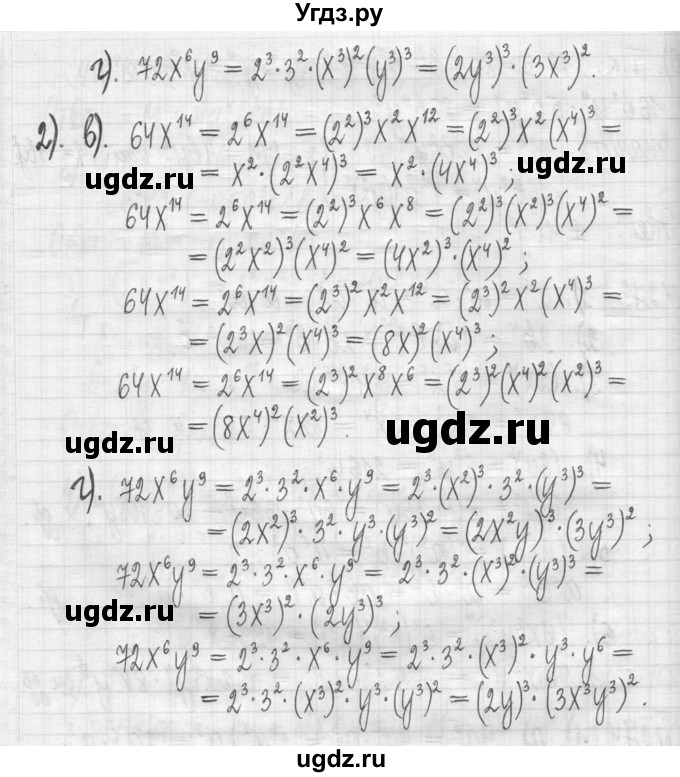 Угдз.ру
г). 72x⁶y⁹ = 2³·3²·(x³)²(y³)³ = (2y³)³·(3x³)².
2). в). 64x¹⁴ = 2⁶x¹⁴ = (2²)³x²x¹² = (2²)³x²(x⁴)³ =
ugdz.ru
ugdz.ru
= x²·(2²x⁴)³ = x²·(4x⁴)³ ;
64x¹⁴ = 2⁶x¹⁴ = (2²)³x⁶x⁸ = (2²)³(x²)³(x⁴)² =
= (2²x²)³(x⁴)² = (4x²)³·(x⁴)² ;
64x¹⁴ = 2⁶x¹⁴ = (2³)²x²x¹² = (2³)²x²(x⁴)³ =
= (2³x)²(x⁴)³ = (8x)²(x⁴)³ ;
64x¹⁴ = 2⁶x¹⁴ = (2³)²x⁸x⁶ = (2³)²(x⁴)²(x²)³ =
= (8x⁴)²(x²)³.
ugdz.ru
ugdz.ru
г). 72x⁶y⁹ = 2³·3²·x⁶·y⁹ = 2³·(x²)³·3²·(y³)³ =
= (2x²)³·3²·y³·(y³)² = (2x²y)³·(3y³)² ;
72x⁶y⁹ = 2³·3²·x⁶·y⁹ = 2³·3²·(x³)²·(y³)³ =
ugdz.ru
= (3x³)²·(2y³)³ ;
72x⁶y⁹ = 2³·3²·x⁶·y⁹ = 2³·3²·(x³)²·y³·y⁶ =
= 2³·3²·(x³)²·y³·(y³)² = (2y)³·(3x³y³)².
ugdz.ru